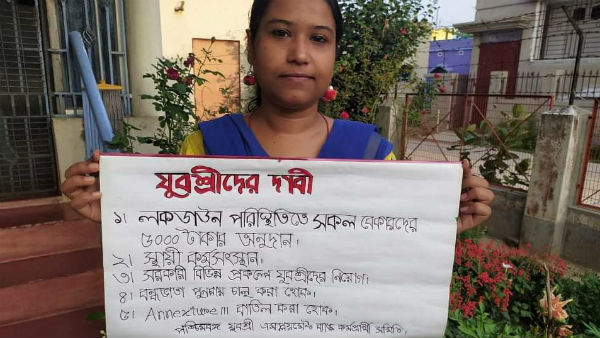 যুবশ্রীদের দাবী
১। লকডাউন পরিস্থিতিতে সকল বেকারদের
৫০০০ টাকার অনুদান।
২। স্থায়ী কর্মসংস্থান।
৩। সরকারি বিভিন্ন প্রকল্পে যুবশ্রীদের নিয়োগ।
৪। বন্ধভাতা পুনরায় চালু করা হোক।
৫। Annexture III বাতিল করা হোক।
পশ্চিমবঙ্গ যুবশ্রী এমপ্লয়মেন্ট ব্যাঙ্ক কর্মপ্রার্থী সমিতি।